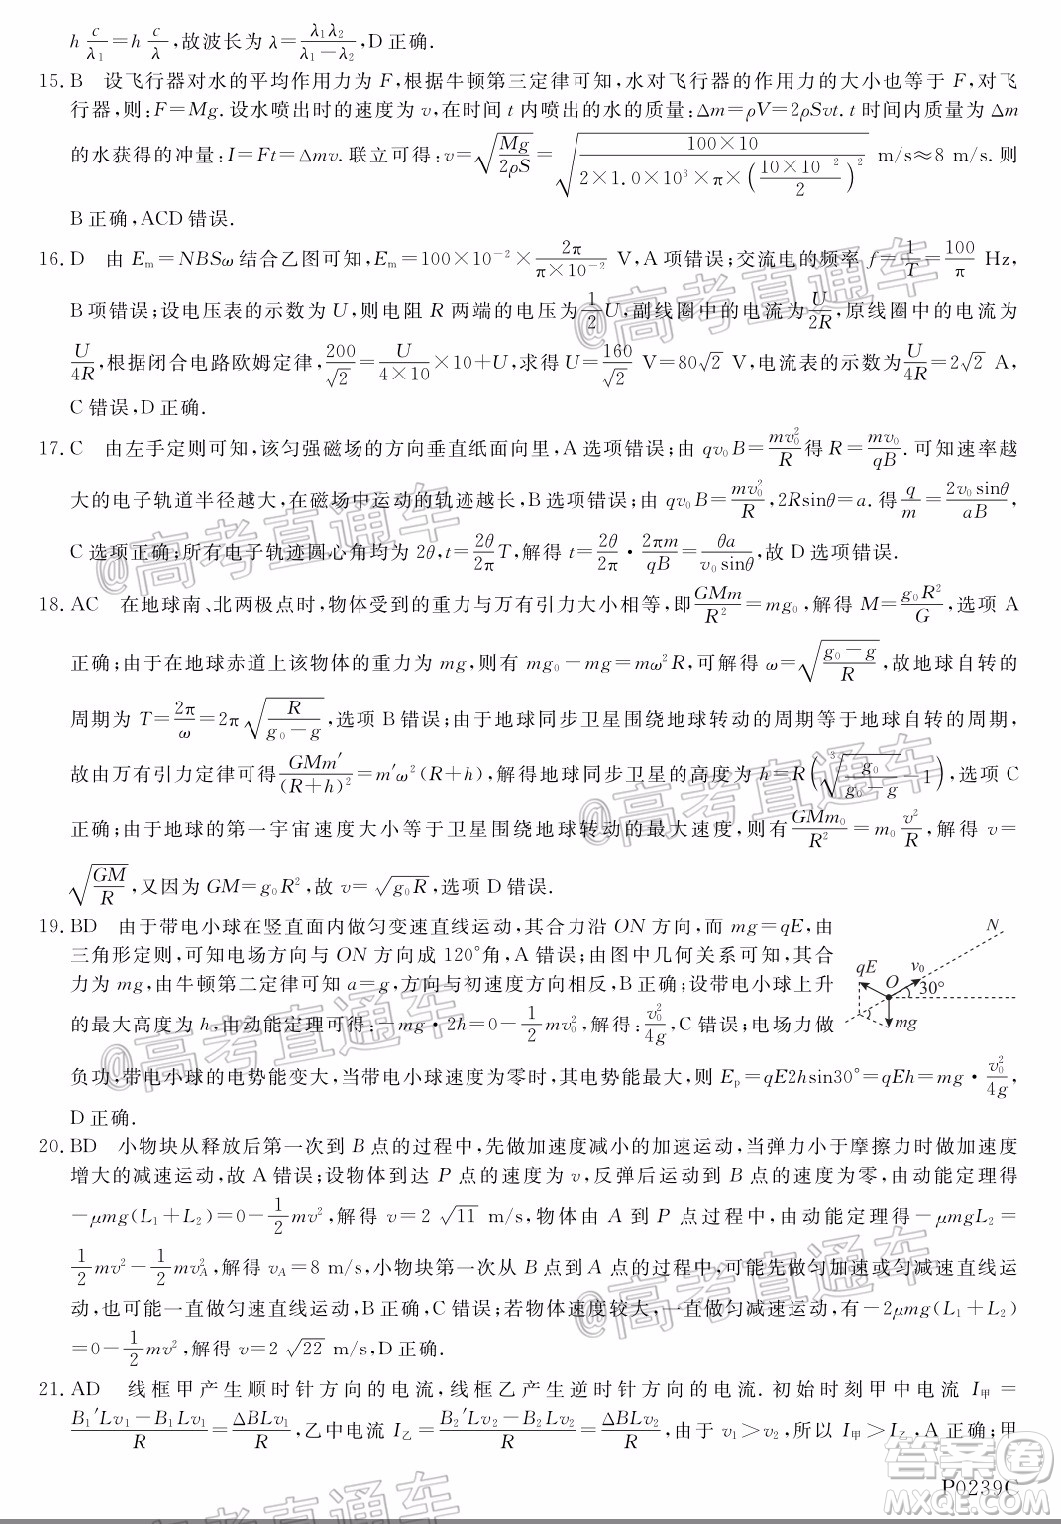 h c/λ₁=h c/λ,故波长为 λ=λ₁λ₂/(λ₁-λ₂),D 正确.
15. B 设飞行器对水的平均作用力为 F,根据牛顿第三定律可知,水对飞行器的作用力的大小也等于 F,对飞
行器,则:F=Mg. 设水喷出时的速度为 v,在时间 t 内喷出的水的质量:Δm=ρV=2ρSvt. t 时间内质量为 Δm
的水获得的冲量:I=Ft=Δmv. 联立可得:v=√(Mg/2ρS)=√(100×10/(2×1.0×10³×π×((10×10⁻²)/2)²)) m/s≈8 m/s. 则
B 正确,ACD 错误.
16. D 由 Eₘ=NBSω 结合乙图可知,Eₘ=100×10⁻²×2π/(π×10⁻²) V,A 项错误;交流电的频率 f=1/T=100/π Hz,
B 项错误;设电压表的示数为 U,则电阻 R 两端的电压为 1/2 U,副线圈中的电流为 U/2R,原线圈中的电流为
U/4R,根据闭合电路欧姆定律,200/√2=U/(4×10)×10+U,求得 U=160/√2 V=80√2 V,电流表的示数为 U/4R=2√2 A,
C 错误,D 正确.
17. C 由左手定则可知,该匀强磁场的方向垂直纸面向里,A 选项错误;由 qv₀B=mv₀²/R 得 R=mv₀/qB. 可知速率越
大的电子轨道半径越大,在磁场中运动的轨迹越长,B 选项错误;由 qv₀B=mv₀²/R,2Rsinθ=a. 得 q/m=2v₀sinθ/aB,
C 选项正确;所有电子轨迹圆心角均为 2θ,t=2θ/2π T,解得 t=2θ/2π・2πm/qB=θa/(v₀sinθ),故 D 选项错误.
18. AC 在地球南、北两极点时,物体受到的重力与万有引力大小相等,即 GMm/R²=mg₀,解得 M=g₀R²/G,选项 A
正确;由于在地球赤道上该物体的重力为 mg,则有 mg₀-mg=mω²R,可解得 ω=√((g₀-g)/R),故地球自转的
周期为 T=2π/ω=2π√(R/(g₀-g)),选项 B 错误;由于地球同步卫星围绕地球转动的周期等于地球自转的周期,
故由万有引力定律可得 GMm′/(R+h)²=m′ω²(R+h),解得地球同步卫星的高度为 h=R(∛(g₀/(g₀-g))-1),选项 C
正确;由于地球的第一宇宙速度大小等于卫星围绕地球转动的最大速度,则有 GMm₀/R²=m₀ v²/R,解得 v=
√(GM/R),又因为 GM=g₀R²,故 v=√(g₀R),选项 D 错误.
19. BD 由于带电小球在竖直面内做匀变速直线运动,其合力沿 ON 方向,而 mg=qE,由
三角形定则,可知电场方向与 ON 方向成 120°角,A 错误;由图中几何关系可知,其合
力为 mg,由牛顿第二定律可知 a=g,方向与初速度方向相反,B 正确;设带电小球上升
的最大高度为 h,由动能定理可得:-mg・2h=0-1/2 mv₀²,解得:v₀²/4g,C 错误;电场力做
负功,带电小球的电势能变大,当带电小球速度为零时,其电势能最大,则 Eₚ=qE2hsin30°=qEh=mg・v₀²/4g,
D 正确.
N
qE
O
v₀
30°
mg
20. BD 小物块从释放后第一次到 B 点的过程中,先做加速度减小的加速运动,当弹力小于摩擦力时做加速度
增大的减速运动,故 A 错误;设物体到达 P 点的速度为 v,反弹后运动到 B 点的速度为零,由动能定理得
-μmg(L₁+L₂)=0-1/2 mv²,解得 v=2√11 m/s,物体由 A 到 P 点过程中,由动能定理得-μmgL₂=
1/2 mv²-1/2 mv_A²,解得 v_A=8 m/s,小物块第一次从 B 点到A 点的过程中,可能先做匀加速或匀减速直线运
动,也可能一直做匀速直线运动,B 正确,C 错误;若物体速度较大,一直做匀减速运动,有-2μmg(L₁+L₂)
=0-1/2 mv²,解得 v=2√22 m/s,D 正确.
21. AD 线框甲产生顺时针方向的电流,线框乙产生逆时针方向的电流. 初始时刻甲中电流 I甲=
(B₁′Lv₁-B₁Lv₁)/R=ΔBLv₁/R,乙中电流 I乙=(B₂′Lv₂-B₂Lv₂)/R=ΔBLv₂/R,由于 v₁>v₂,所以 I甲>I乙,A 正确;甲
P0239C
@高考直通车
@高考直通车
@高考直通车
@高考直通车
@高考直通车
@高考直通车
@高考直通车
@高考直通车
答案圈
MXQE.COM